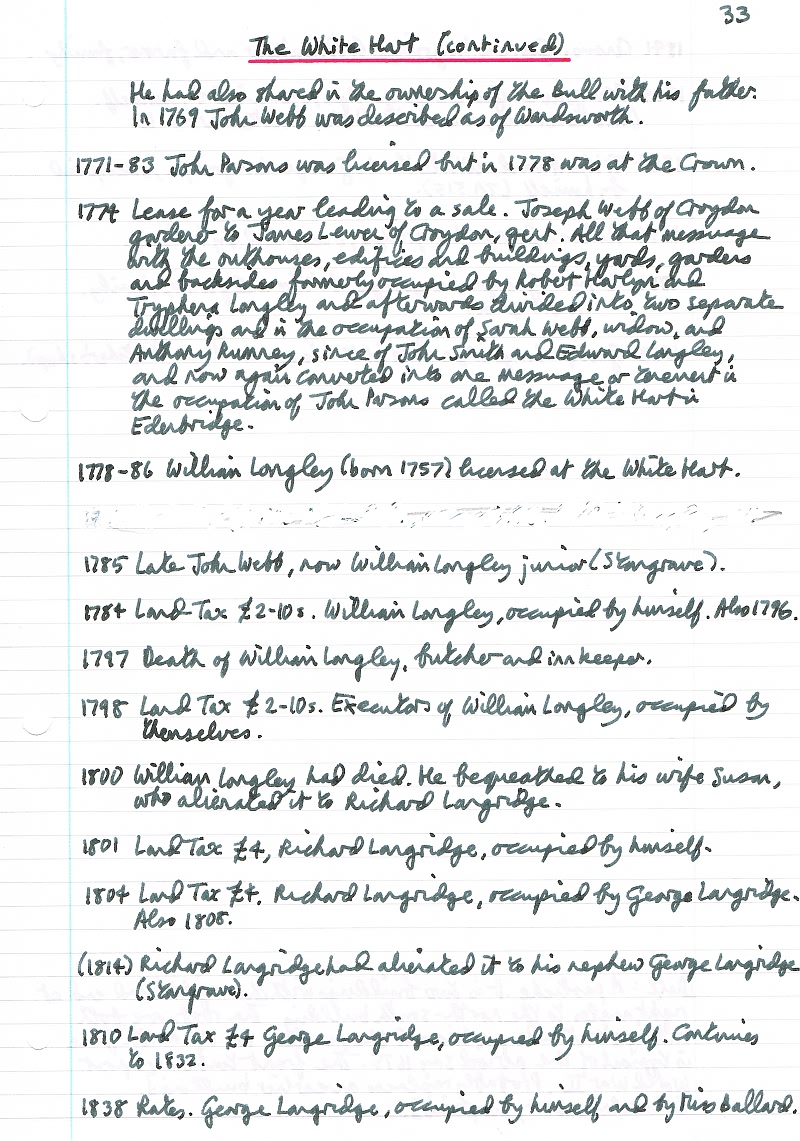 33
The White Hart (continued)
He had also shared in the ownership of the Bull with his father.
In 1769 John Webb was described as of Wandsworth.
1771-83 John Parsons was licensed but in 1778 was at the Crown.
1774 Lease for a year leading to a sale. Joseph Webb of Croydon
gardener to James Lewer of Croydon, gent. All that messuage
with the outhouses, edifices and buildings, yards, gardens
and backsides formerly occupied by Robert Martyn and
Tryphena Longley and afterwards divided into two separate
dwellings and in the occupation of Sarah Webb, widow, and
Anthony Rumney, since of John Smith and Edward Longley,
and now again converted into one messuage or tenement in
the occupation of John Parsons called the White Hart in
Edenbridge.
1778-86 William Longley (born 1757) licensed at the White Hart.
1785 Late John Webb, now William Longley junior (Stangrave).
1784 Land Tax £2-10s. William Longley, occupied by himself. Also 1796.
1797 Death of William Longley, butcher and innkeeper.
1798 Land Tax £2-10s. Executors of William Longley, occupied by
themselves.
1800 William Longley had died. He bequeathed to his wife Susan,
who alienated it to Richard Langridge.
1801 Land Tax £4, Richard Langridge, occupied by himself.
1804 Land Tax £4. Richard Langridge, occupied by George Langridge.
Also 1808.
(1814) Richard Langridge had alienated it to his nephew George Langridge
(Stangrave).
1810 Land Tax £4 George Langridge, occupied by himself. Continues
to 1832.
1838 Rates. George Langridge, occupied by himself and by Miss Ballard.